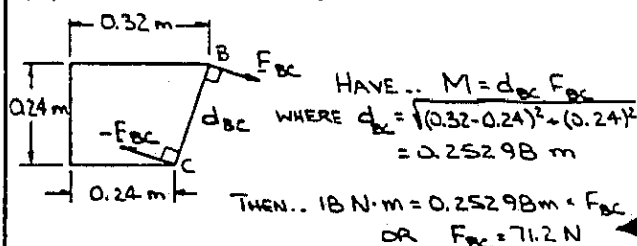 0.32 m
B
F_BC
0.24 m
d_BC
-F_BC
C
0.24 m
HAVE.. M = d_BC F_BC
WHERE d_BC = √(0.32-0.24)² + (0.24)²
= 0.25298 m
THEN.. 18 N·m = 0.25298m × F_BC
OR F_BC = 71.2 N ◄